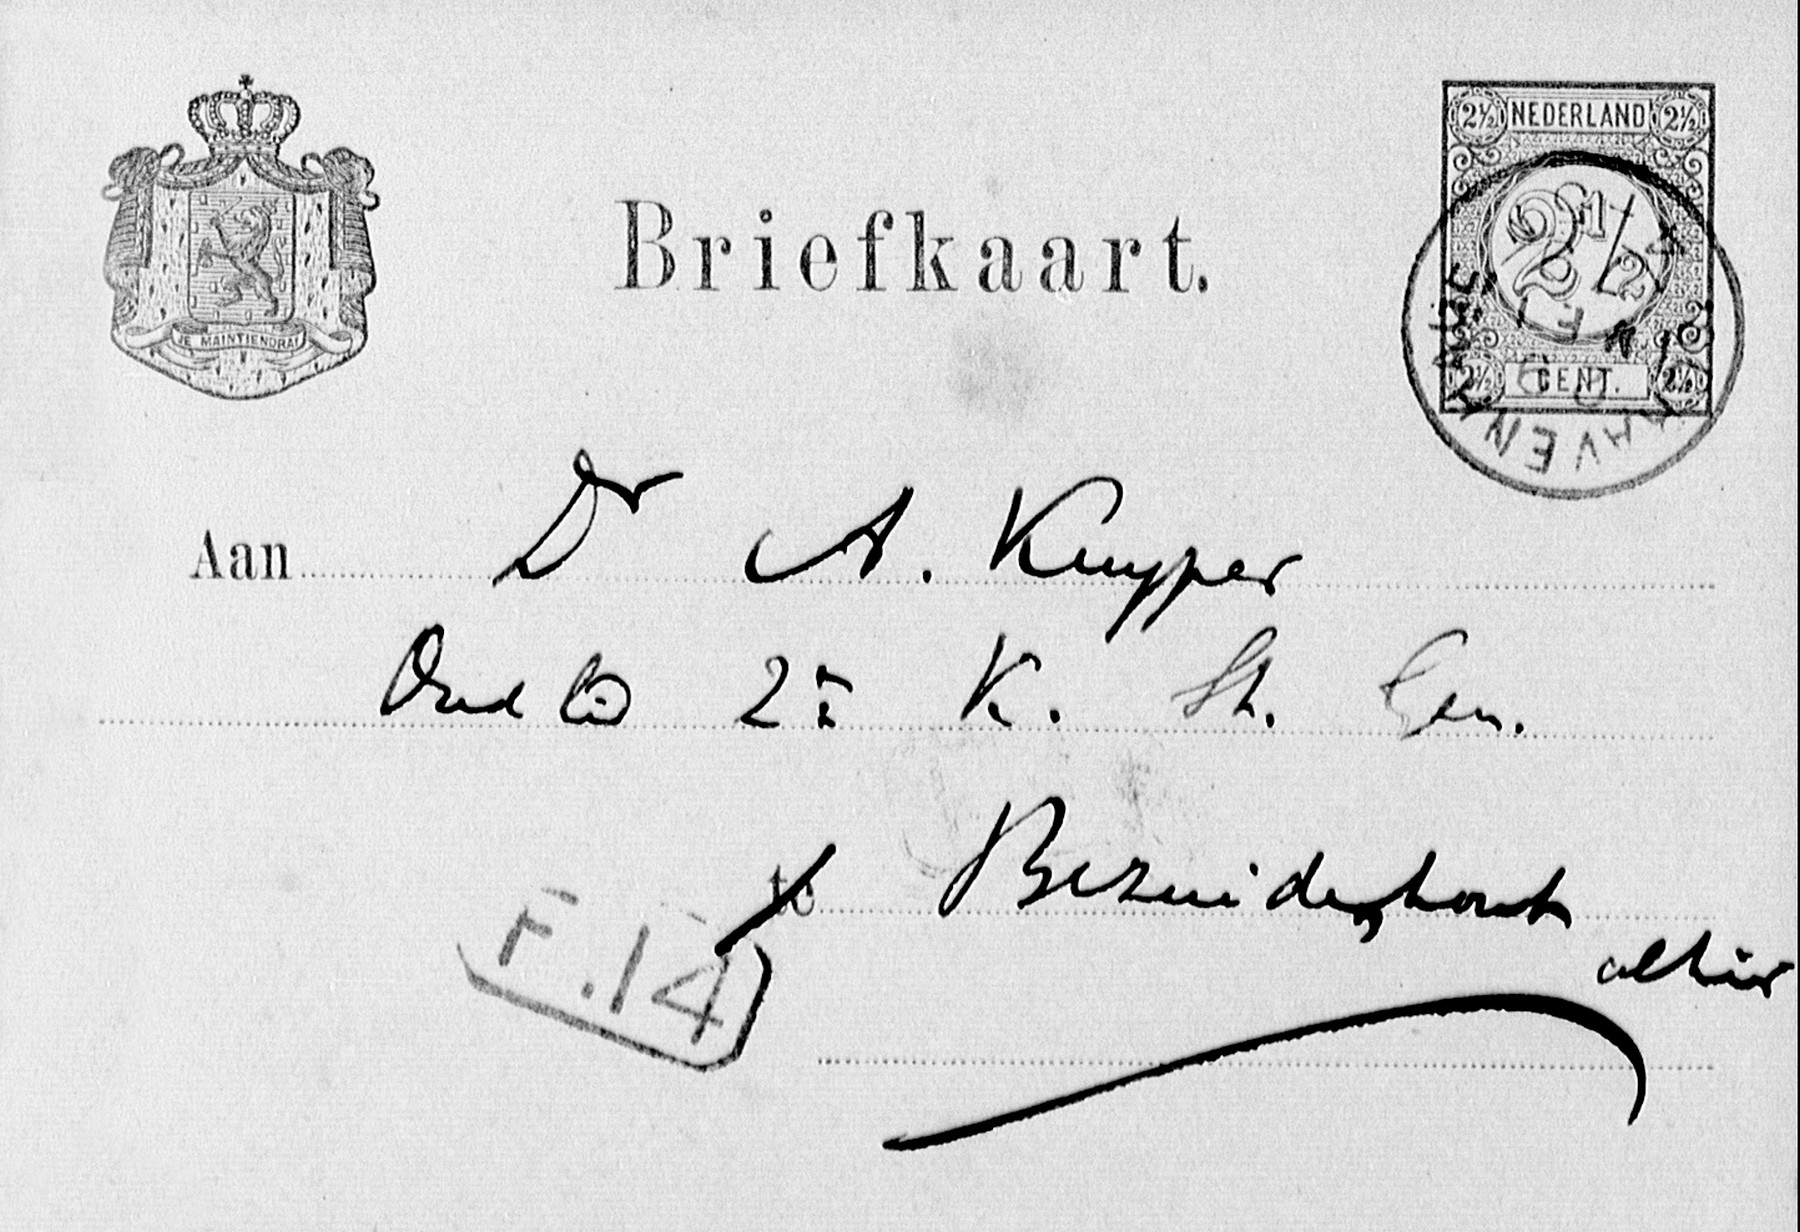 JE MAINTIENDRAI
Briefkaart.
2½ NEDERLAND 2½
2½
2½ CENT. 2½
Aan Dr A. Kuyper
Oud 2e K. St. Gen.
te Bezuidenhout
alhier
F.14